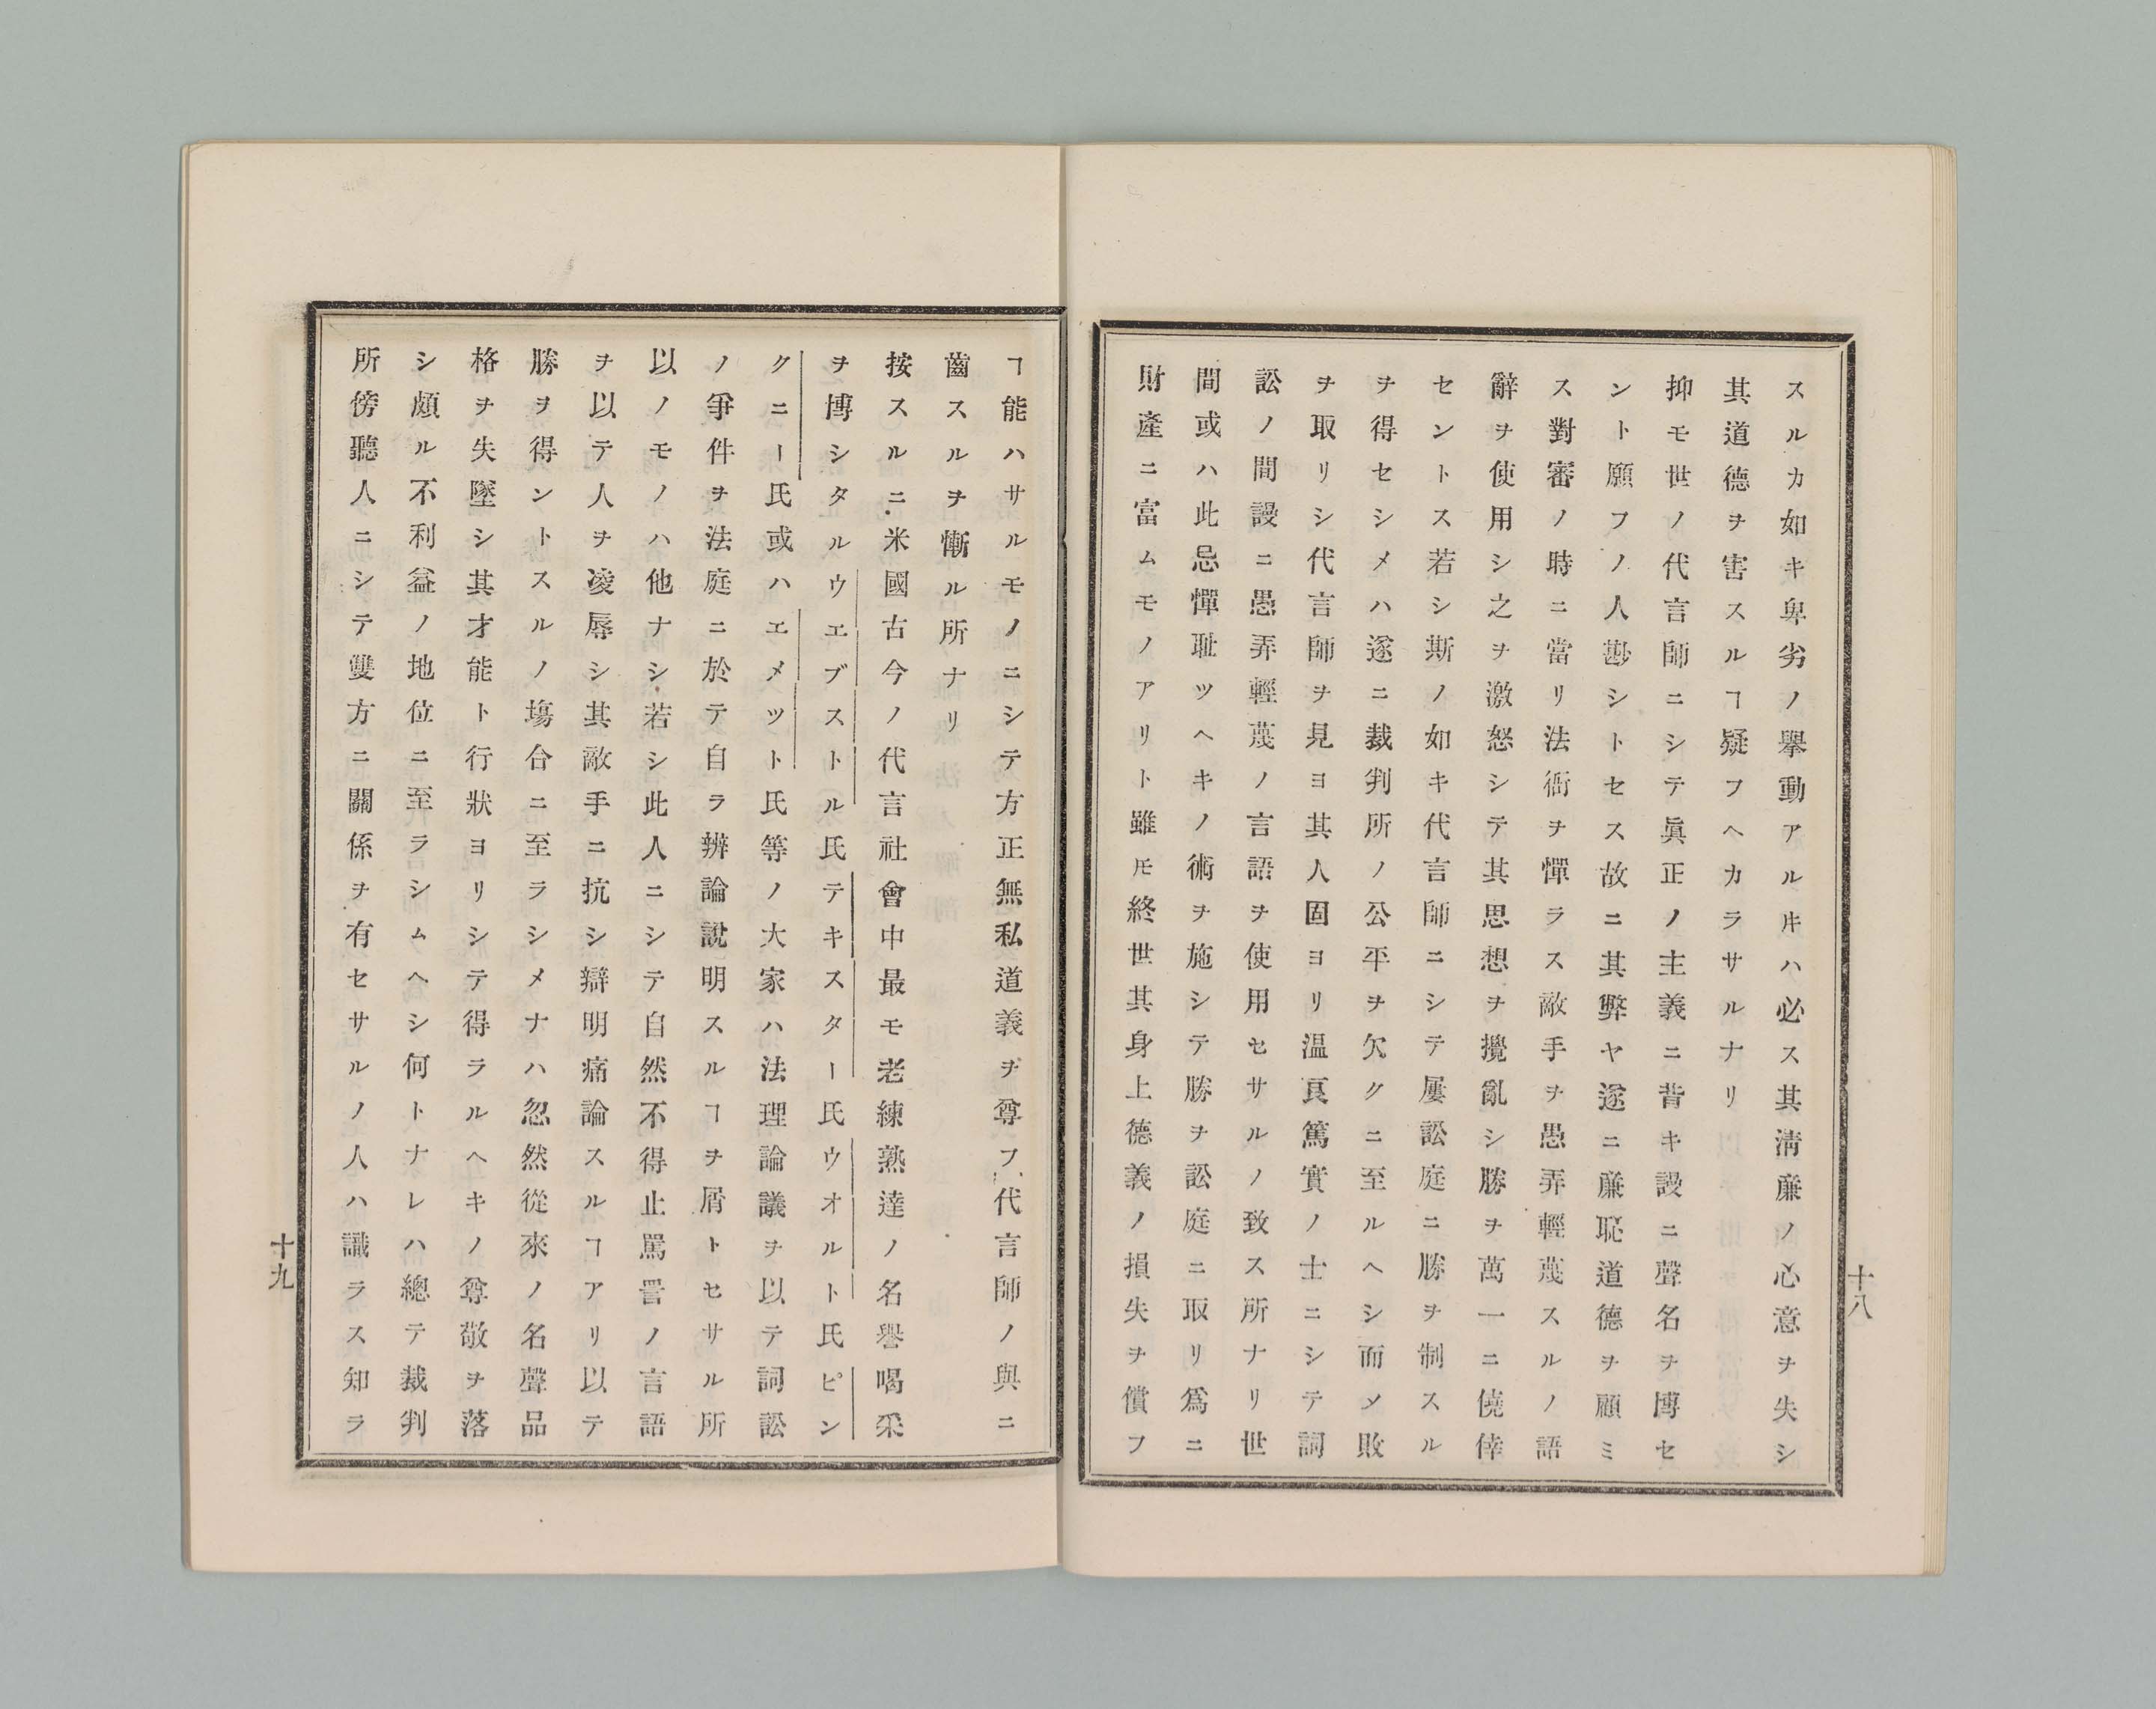 スルカ如キ卑劣ノ擧動アルㇳキハ必ス其淸廉ノ心意ヲ失シ
其道德ヲ害スルヿ疑フヘカラサルナリ
抑モ世ノ代言師ニシテ眞正ノ主義ニ背キ謾ニ聲名ヲ博セ
ント願フノ人尠シトセス故ニ其弊ヤ遂ニ廉恥道德ヲ顧ミ
ス對審ノ時ニ當リ法衙ヲ憚ラス敵手ヲ愚弄輕蔑スルノ語
辭ヲ使用シ之ヲ激怒シテ其思想ヲ攪亂シ勝ヲ萬一ニ僥倖
セントス若シ斯ノ如キ代言師ニシテ屢訟庭ニ勝ヲ制スル
ヲ得セシメハ遂ニ裁判所ノ公平ヲ欠クニ至ルヘシ而メ敗
ヲ取リシ代言師ヲ見ヨ其人固ヨリ温良篤實ノ士ニシテ詞
訟ノ間謾ニ愚弄輕蔑ノ言語ヲ使用セサルノ致ス所ナリ世
間或ハ此忌憚耻ツヘキノ術ヲ施シテ勝ヲ訟庭ニ取リ爲ニ
財產ニ富ムモノアリト雖𪜈終世其身上德義ノ損失ヲ償フ
十八
ヿ能ハサルモノニシテ方正無私道義ヲ尊フ代言師ノ與ニ
齒スルヲ慚ル所ナリ
按スルニ米國古今ノ代言社會中最モ老練熟達ノ名譽喝采
ヲ博シタルウエブストル氏テキスター氏ウオルト氏ピン
クニー氏或ハエメツト氏等ノ大家ハ法理論議ヲ以テ詞訟
ノ爭件ヲ法庭ニ於テ自ラ辨論說明スルヿヲ屑トセサル所
以ノモノハ他ナシ若シ此人ニシテ自然不得止罵詈ノ言語
ヲ以テ人ヲ凌辱シ其敵手ニ抗シ辯明痛論スルヿアリ以テ
勝ヲ得ントスルノ塲合ニ至ラシメナハ忽然從來ノ名聲品
格ヲ失墜シ其才能ト行狀ヨリシテ得ラルヘキノ尊敬ヲ落
シ頗ル不利益ノ地位ニ至ラシムヘシ何トナレハ總テ裁判
所傍聽人ニシテ雙方ニ關係ヲ有セサルノ人ハ識ラス知ラ
十九